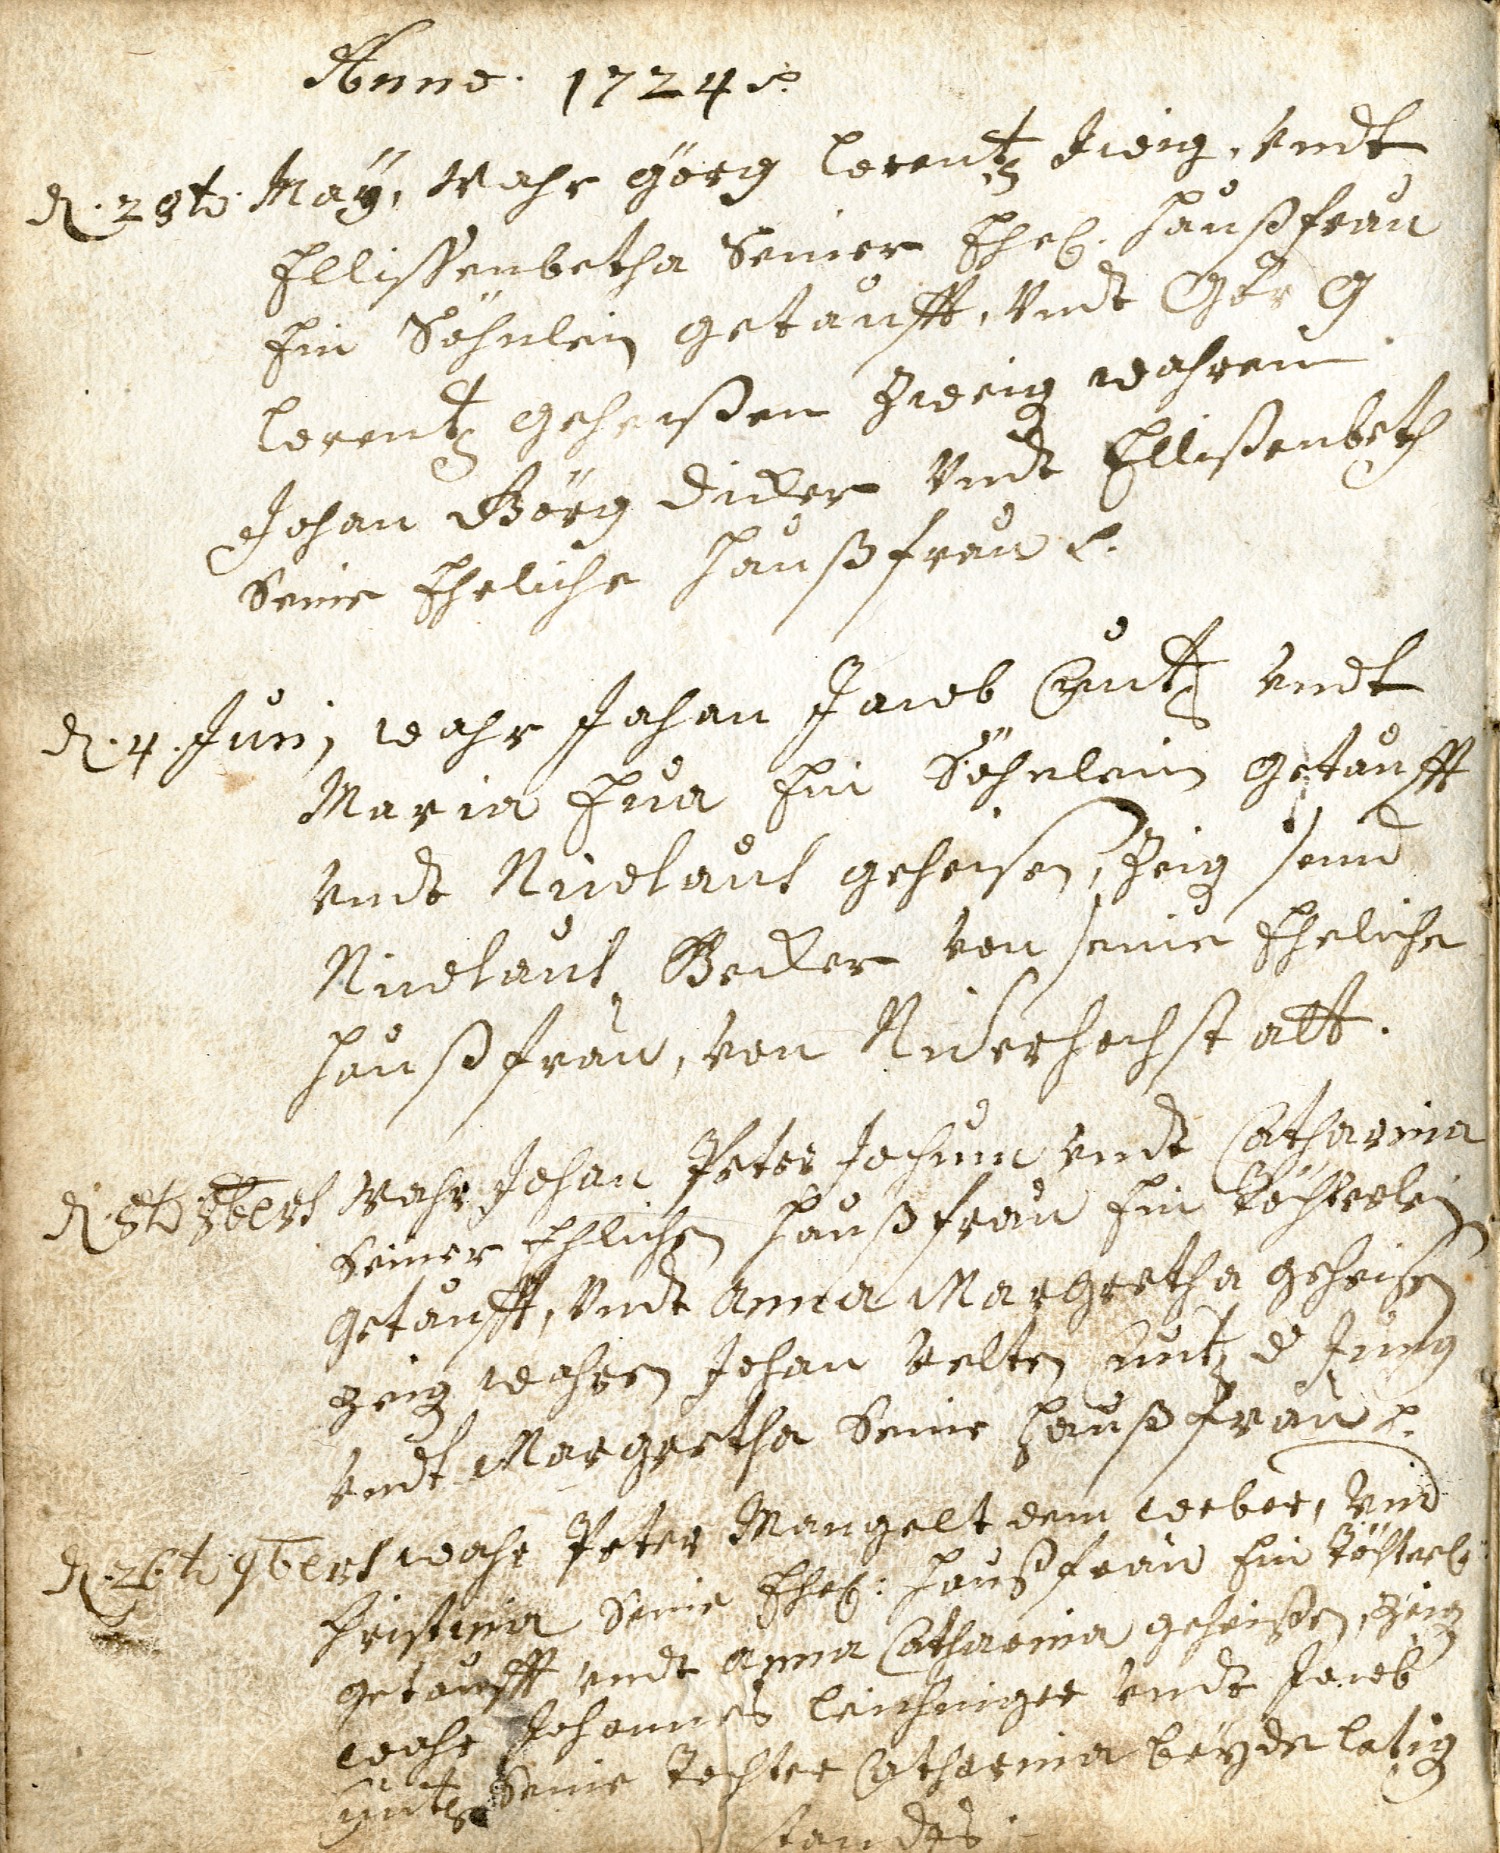 Anno. 1724 ..
d. 28t. Maÿ, Wahr Görg Lorentz Zweig, Vndt
Ellissenbetha Seiner Ehel. haußfrau
Ein Söhnlein getaufft, Vndt Görg
Lorentz geheißen Zweig wahren
Johan Görg Dicker Vndt Ellißenbeth
Seine Eheliche haußfrau ..
d. 4. Junj, wahr Johan Jacob Cuntz Vndt
Maria Eva Ein Söhnlein getaufft
Vndt Nicklaus geheisen, Zeig seind
Nicklaus Becker von seine Eheliche
haußfrau, von Niderhochstatt.
d. 8t. 8berß Wahr Johan Peter Jochum Vndt Catharina
Seiner Ehlichen haußfrau Ein Töchterlein
getaufft, Vndt Anna Margretha geheisen
Zeig wahren Johan Velten Cuntz d Jung
Vndt Margretha Seine haußfrau ..
d. 26t. 9berß wahr Peter Mangolt dem weber, Vnd
Christina Seine Ehel: haußfrau Ein Töchterl
getaufft Vndt Anna Catharina geheißen, Zeig
wahr Johannes Vndt Jacob
Seine Tochter Catharina beyde letig
standes